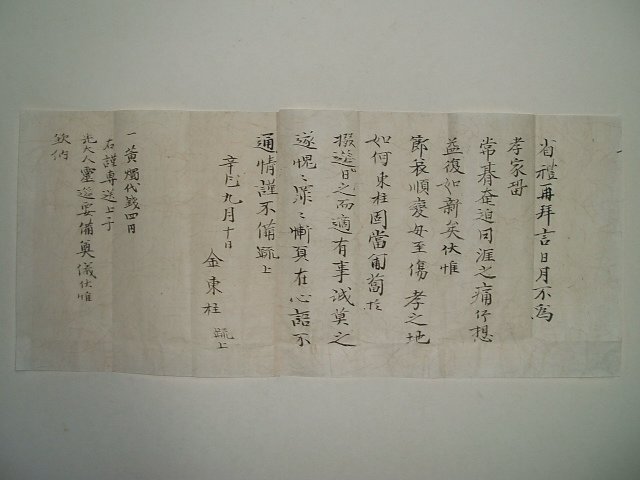 省禮再拜言日月不爲
孝家留
常朞奄迫罔涯之痛仰想
益復如新矣伏惟
節哀順變毋至傷孝之地
如何東柱固當匍匐於
掇筵日之而適有事誠莫之
遂愧〻罪〻慚負在心語不
通情謹不備疏上
辛巳九月十日
金東柱 疏上
一黃燭代錢四円
右謹專送上于
先大人靈筵要備奠儀伏惟
欽納